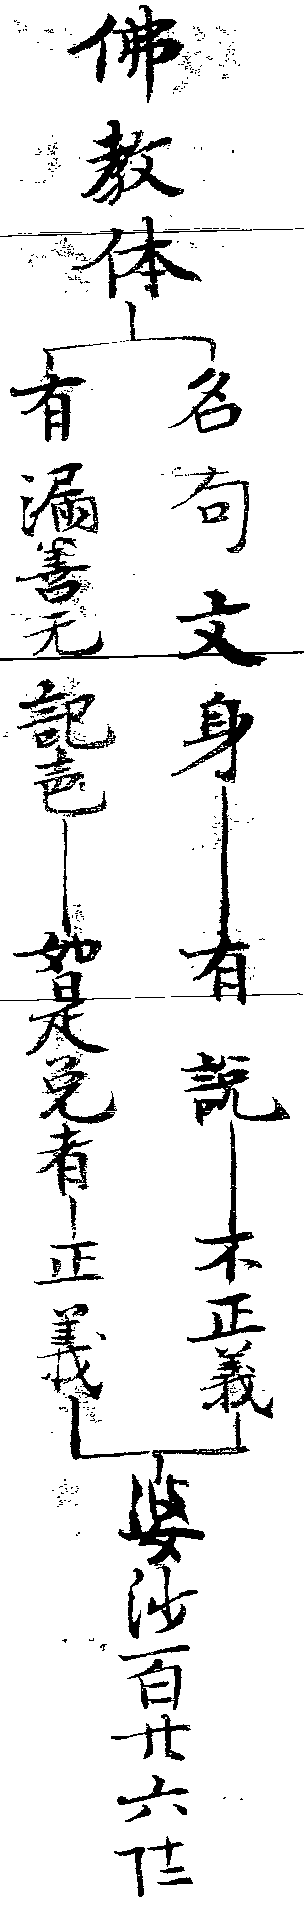 佛教体
名句文身 有説 不正義
有漏善无記色 如是兑者 正義
婆沙百廿六